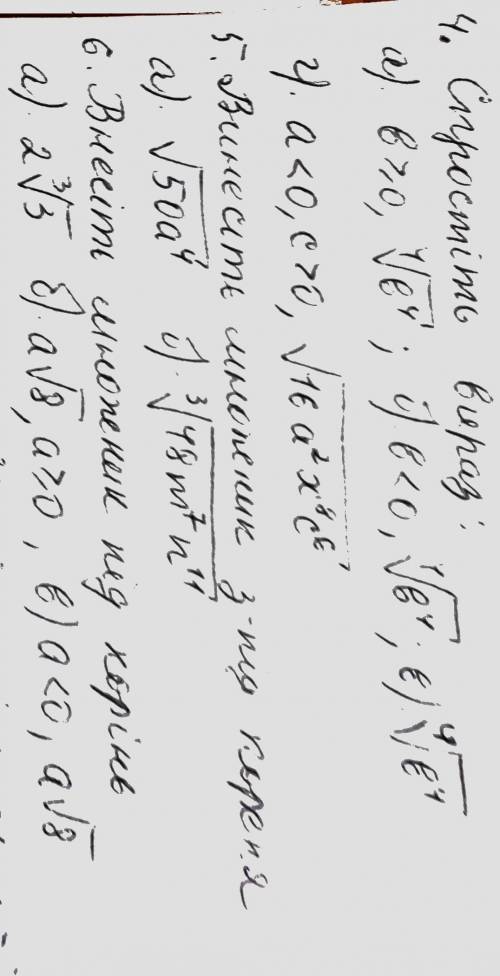 4. Спростіть вираз:
а). в>0, ⁴√в⁴; б) в<0, ⁴√в⁴; в) ⁴√в⁴
г). a<0, c>0, √16a²x⁸c⁶
5. Винесіть множник з-під кореня
а). √50a⁴ б). ³√48m⁷n¹¹
6. Внесіть множник під корінь
а). 2³√3 б). a√8, a>0, в) a<0, a√8